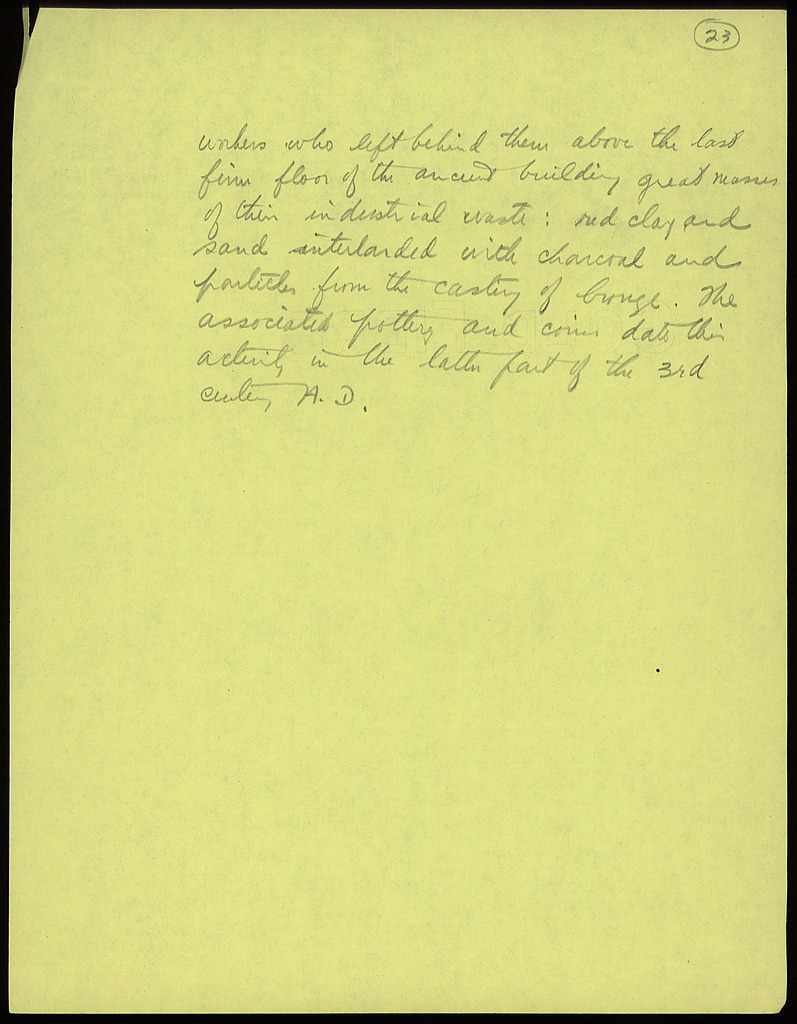 23
workers who left behind them above the last
firm floor of the ancient building great masses
of their industrial waste: red clay and
sand interlarded with charcoal and
particles from the casting of bronze. The
associated pottery and coins date this
activity in the latter part of the 3rd
century A.D.